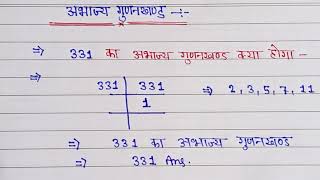 अभाज्य गुणनखण्ड :-
⇒ 331 का अभाज्य गुणनखण्ड क्या होगा -
331 | 331 ⇒ 2, 3, 5, 7, 11
1
⇒ 331 का अभाज्य गुणनखण्ड
⇒ 331 Ans.